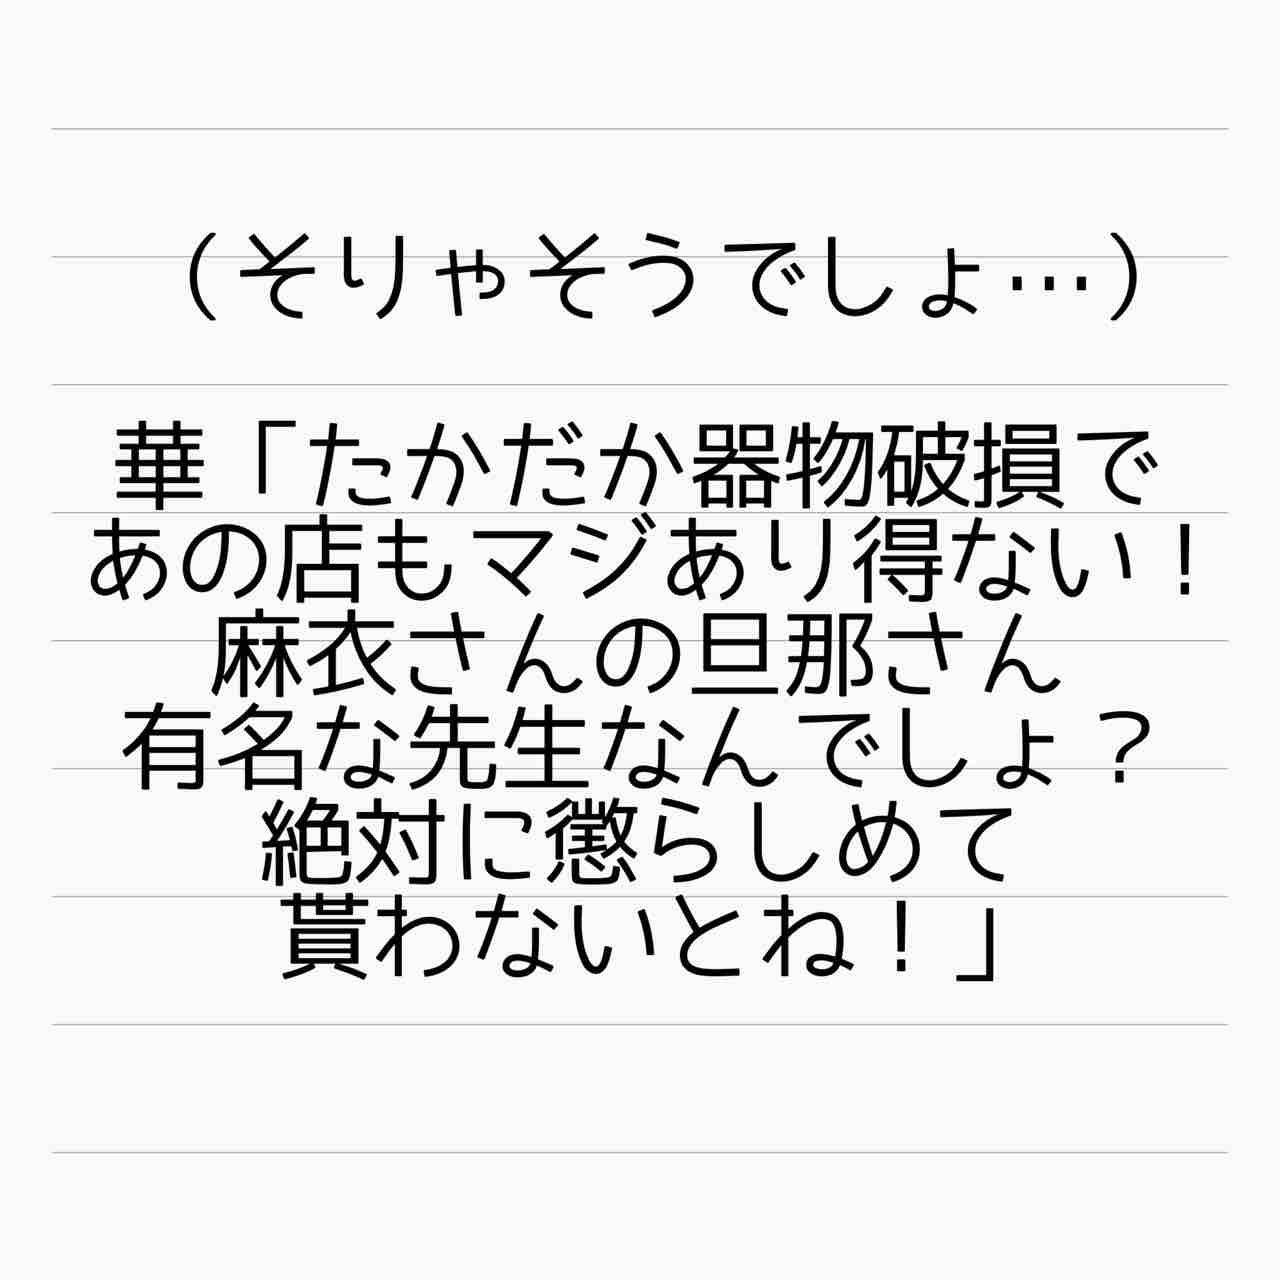 （そりゃそうでしょ…）
華「たかだか器物破損で
あの店もマジあり得ない！
麻衣さんの旦那さん
有名な先生なんでしょ？
絶対に懲らしめて
貰わないとね！」